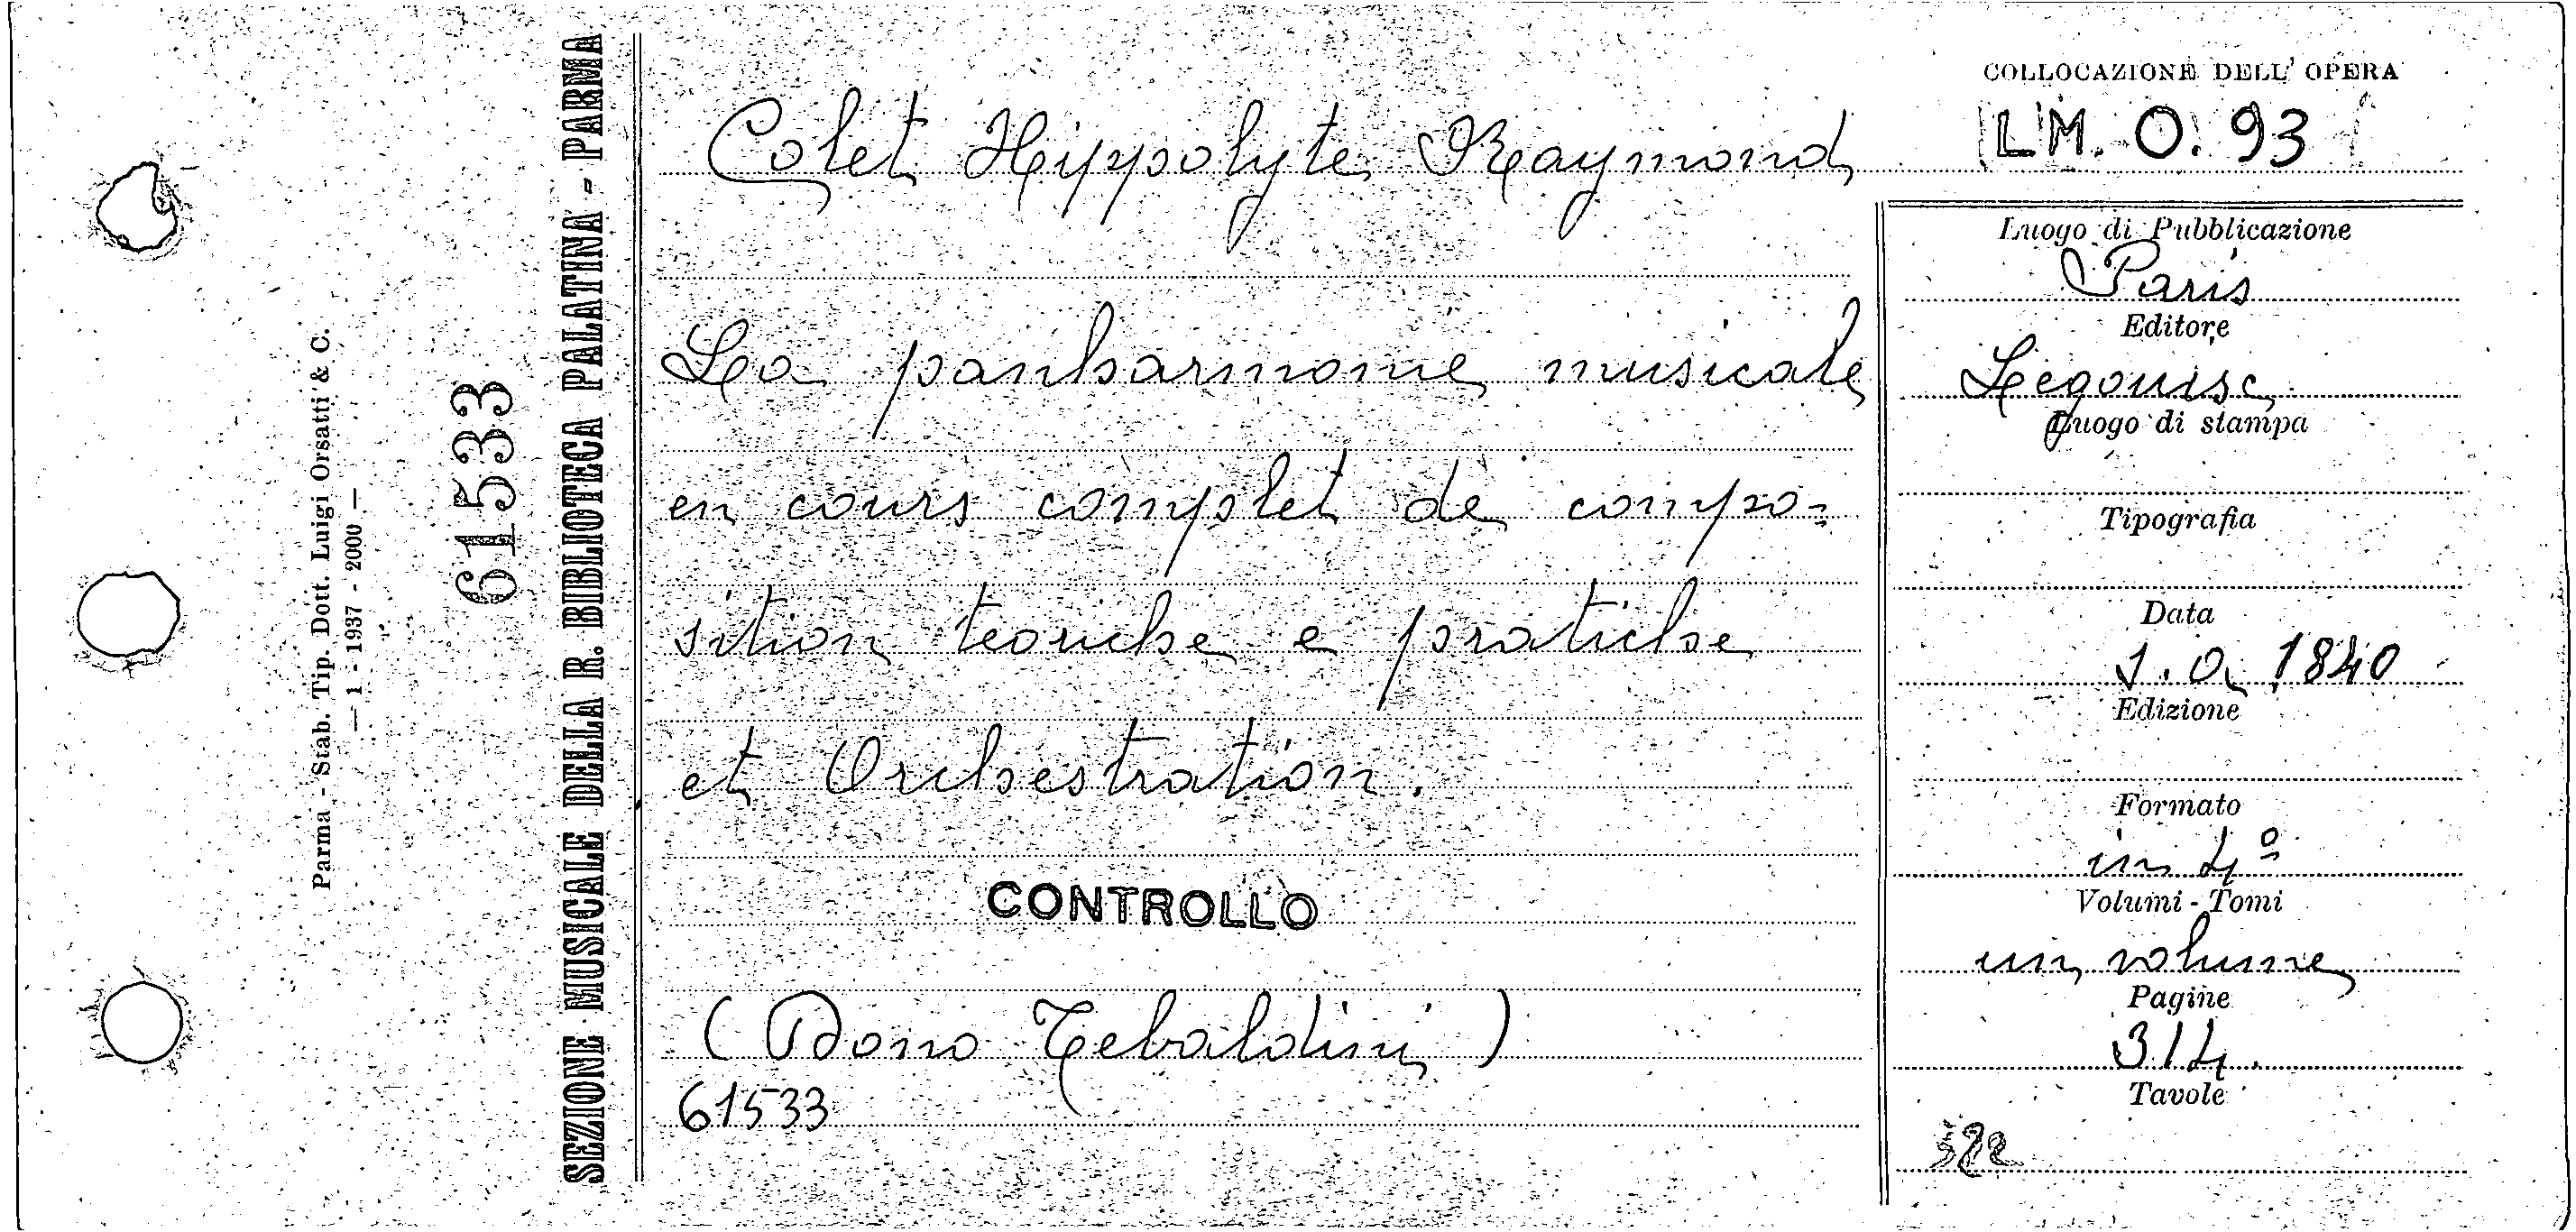 Parma - Stab. Tip. Dott. Luigi Orsatti & C.
— 1 - 1937 - 2000 —
61533
SEZIONE MUSICALE DELLA R. BIBLIOTECA PALATINA - PARMA
Colet Hippolyte Raymond
La panharmonie musicale
en cours complet de compo=
sition teoriche e pratiche
et Orchestration.
CONTROLLO
(Dono Tebaldini)
61533
COLLOCAZIONE DELL' OPERA
LM. O. 93
Luogo di Pubblicazione
Paris
Editore
Legouise
Luogo di stampa
Tipografia
Data
s. a. 1840
Edizione
Formato
in 4º
Volumi - Tomi
un volume
Pagine
314.
Tavole